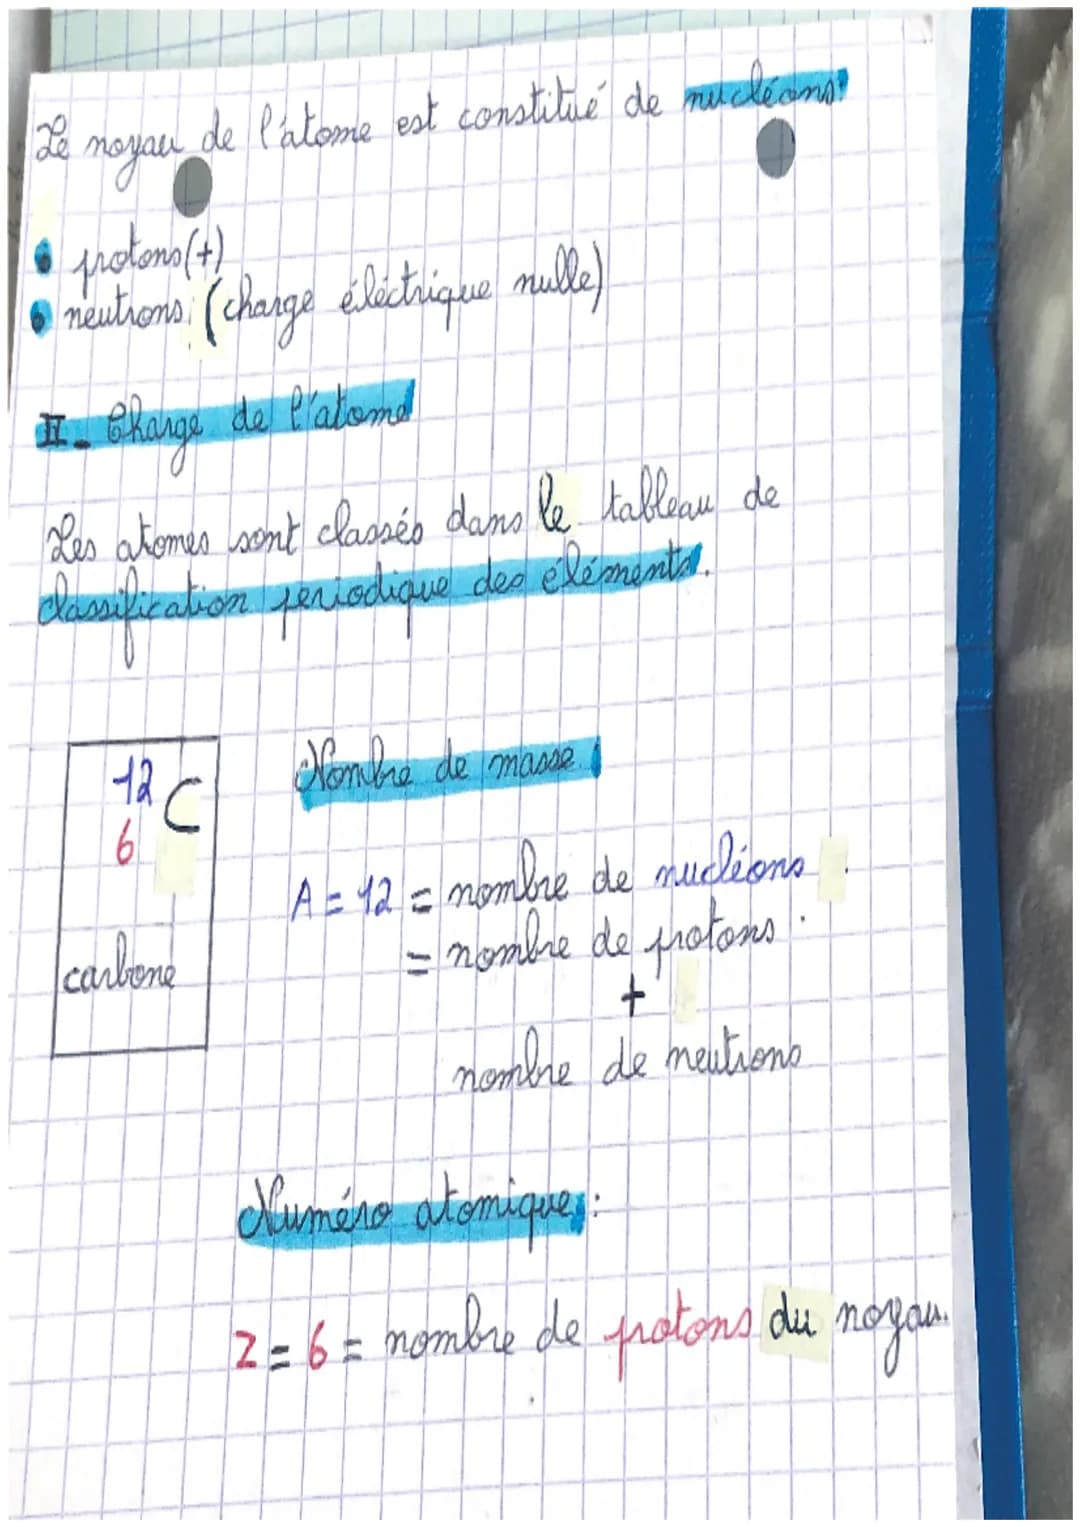 Le noyau de l'atome est constitué de nucléons:
• protons (+)
• neutrons: (charge éléctrique nulle)
II_ Charge de l'atome
Les atomes sont classés dans le tableau de
classification periodique des éléments.
12
C
6
carbone
Nombre de masse:
A = 12 = nombre de nucléons
= nombre de protons
+
nombre de neutrons
Numéro atomique:
Z = 6 = nombre de protons du noyau.